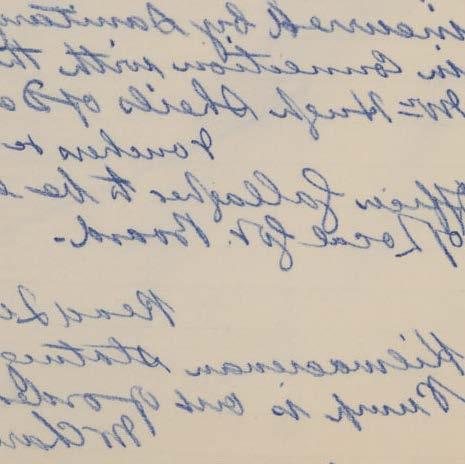 incurred by Sanitary
in Connection with th
Mr Hugh Sheils of Do
Vouchers re
Officer Gallagher to be s
of Local Gov. Board.-
Read Le
Kilmacrenan stating
Pump is out of order
Mr Char